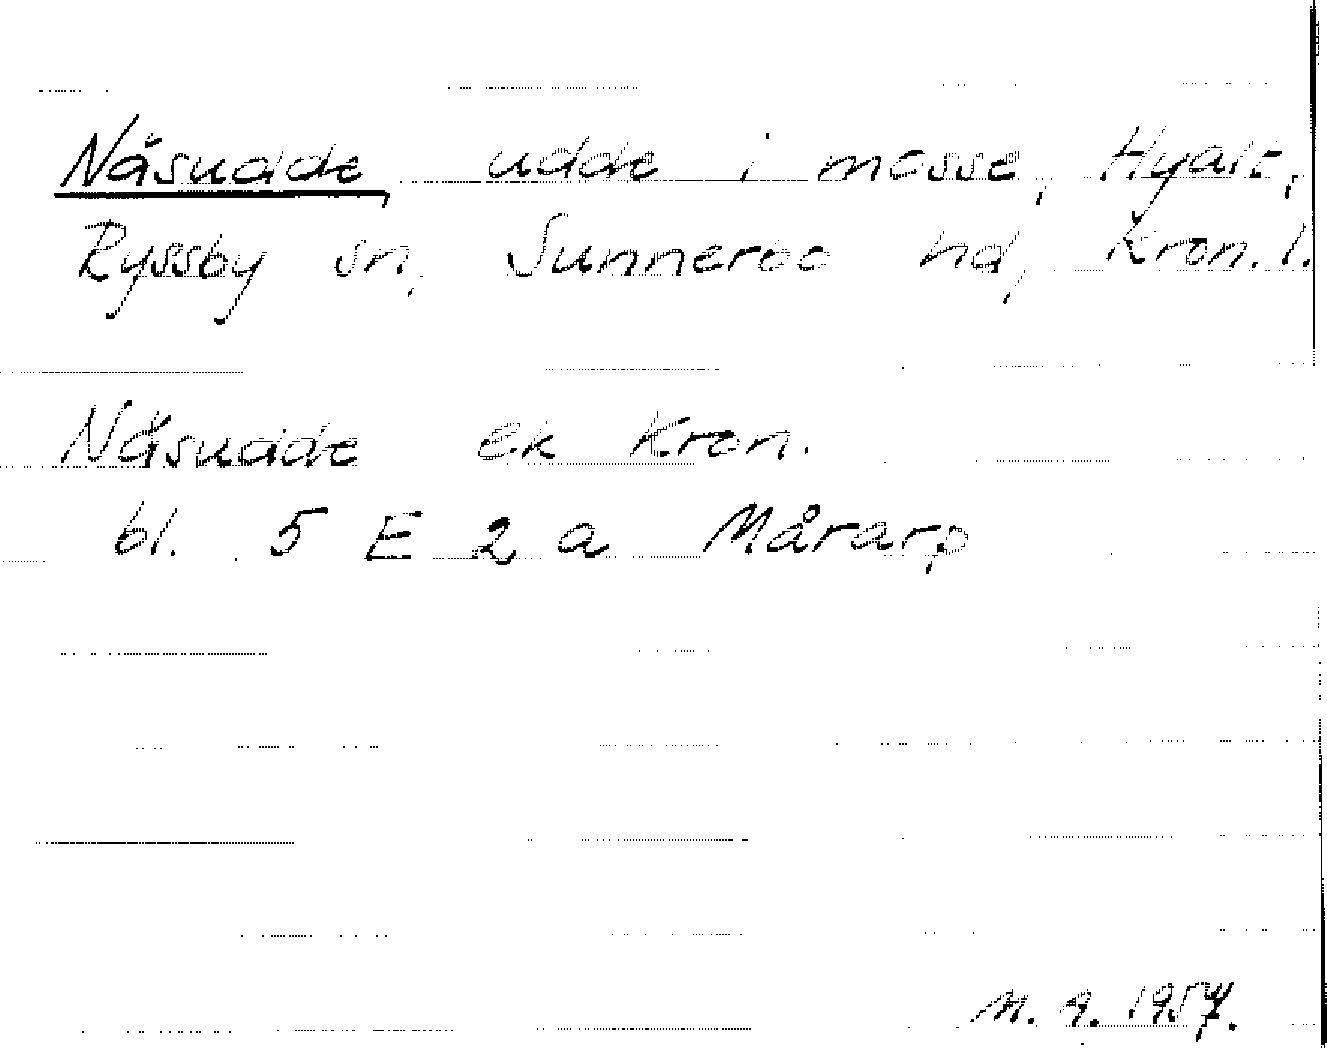 Näsudde, udde i mosse, Hyalt,
Ryssby sn, Sunnerbo hd, Kron. l.
Näsudde ek Kron.
bl. 5 E 2 a Mårarp
M. A. 1957.